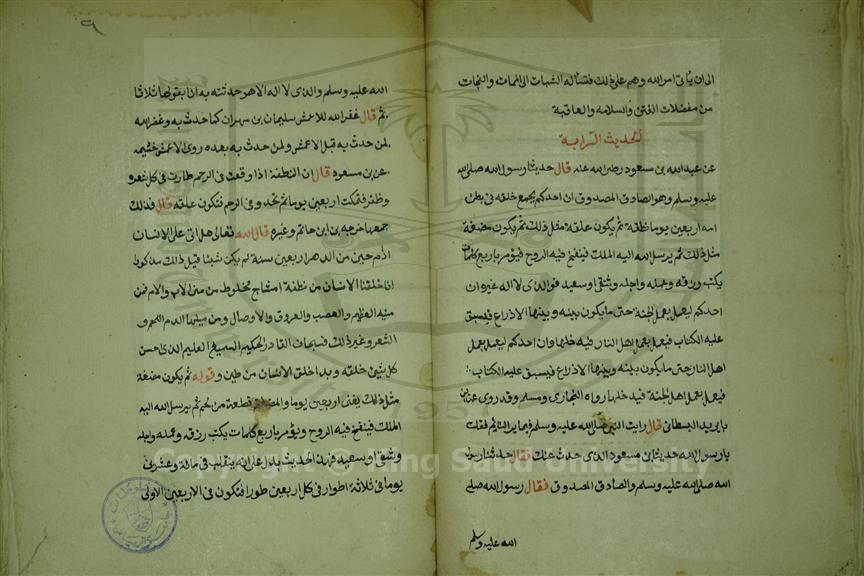 الى ان يأتى امر الله وهم على ذلك فنسأله الثبات الى الممات والنجات
من معضلات الفتن والسلامه والعاقبة
الحديث الرابع
عن عبد الله بن مسعود رضى الله عنه قال حدثنا رسول الله صلى الله
عليه وسلم وهو الصادق المصدوق ان احدكم يجمع خلقه فى بطن
امه اربعين يوما نطفة ثم يكون علقة مثل ذلك ثم يكون مضغة
مثل ذلك ثم يرسل الله اليه الملك فينفخ فيه الروح فيؤمر باربع كلمات
يكتب رزقه وعمله واجله وشقى او سعيد فوالذى لا اله غيره ان
احدكم ليعمل بعمل الجنة حتى ما يكون بينه وبينها الا ذراع فيسبق
عليه الكتاب فيعمل بعمل اهل النار فيدخلها وان احدكم ليعمل بعمل
اهل النار حتى ما يكون بينه وبينها الا ذراع فيسبق عليه الكتاب
فيعمل بعمل اهل الجنة فيدخلها رواه البخارى ومسلم وقد روى عن
با يزيد البسطامى قال رايت النبى صلى الله عليه وسلم فيما يرى النائم فقلت
يا رسول الله حديث ابن مسعود الذى حدث عنك فقال حدثنا رسول
الله صلى الله عليه وسلم والصادق المصدوق فقال رسول الله صلى
الله عليه وسلم
٩
الله عليه وسلم والذى لا اله الا هو حدثته به انا يقولها ثلاثا
ثم قال غفر الله للاعمش سليمان بن مهران كما حدث به وغفر الله
لمن حدث به قبل الاعمش ولمن حدث به بعده روى الاعمش خثيمه
عن بن مسعود قال ان النطفة اذا وقعت فى الرحم طارت فى كل شعر و
وظفر فتمكث اربعين يوما ثم تحدر فى الرحم فتكون علقه قال فذلك
جمعها اخرجه بن ابى حاتم وغيره قال الله تعالى هل اتى على الانسان
حين من الدهر اربعين سنة لم يكن شيئا قبل ذلك مذكورا
انا خلقنا الانسان من نطفة امشاج مخلوط من منى الاب والام فمن
منيه العظم والعصب والعروق والاوصال ومن منيها الدم اللحم و
الشعر وغير ذلك فسبحان القادر الحكيم السميع العليم الذى احسن
كل شيئ خلقه وبدا خلق الانسان من طين وقوله ثم يكون مضغة
مثل ذلك يعنى اربعين يوما والمضغة قطعة من لحم ثم يرسل الله اليه
الملك فينفخ فيه الروح ويؤمر باربع كلمات يكتب رزقه وعمله واجله
وشقى او سعيد فهذا الحديث يدل على انه يتقلب فى مائة وعشرين
يوما فى ثلاثة اطوار فى كل اربعين طورا فتكون فى الاربعين الاولى
1957
Copyright © King Saud University